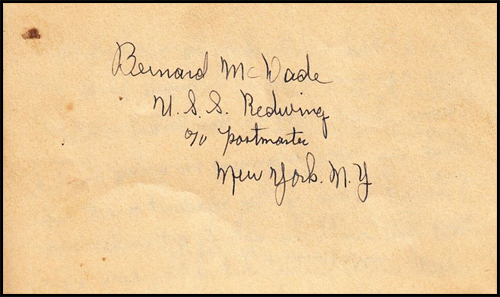 Bernard McDade
U.S.S. Redwing
c/o Postmaster
New York. N.Y